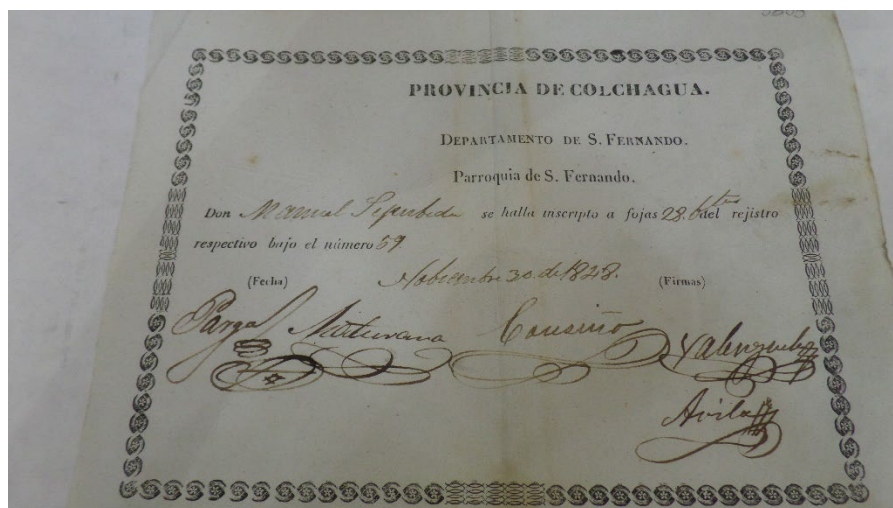 PROVINCIA DE COLCHAGUA.
DEPARTAMENTO DE S. FERNANDO.
Parroquia de S. Fernando.
Don Manuel Sepulbeda se halla inscripto a fojas 28. btas del rejistro
respectivo bajo el número 59
(Fecha) Nobiembre 30 de 1828. (Firmas)
Parga Maturana Cousiño Valenzuela
Avila